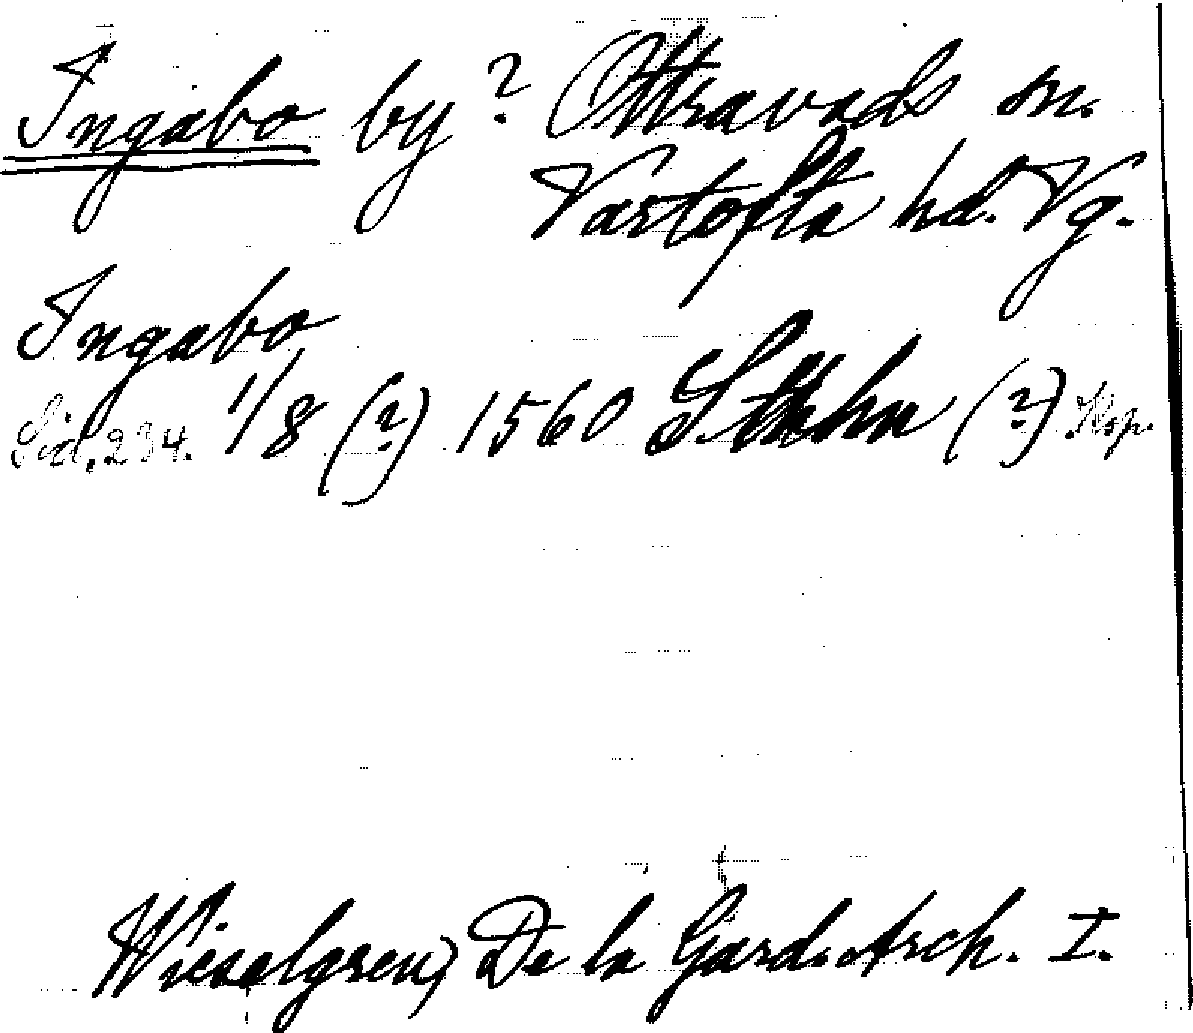 Ingabo by? Ottravads sn.
Vartofta hd. Vg.
Ingabo
Sid. 234. 1/8 (?) 1560 Sthhn (?) Kop.
Wieselgren, De la Gard. Arch. I.